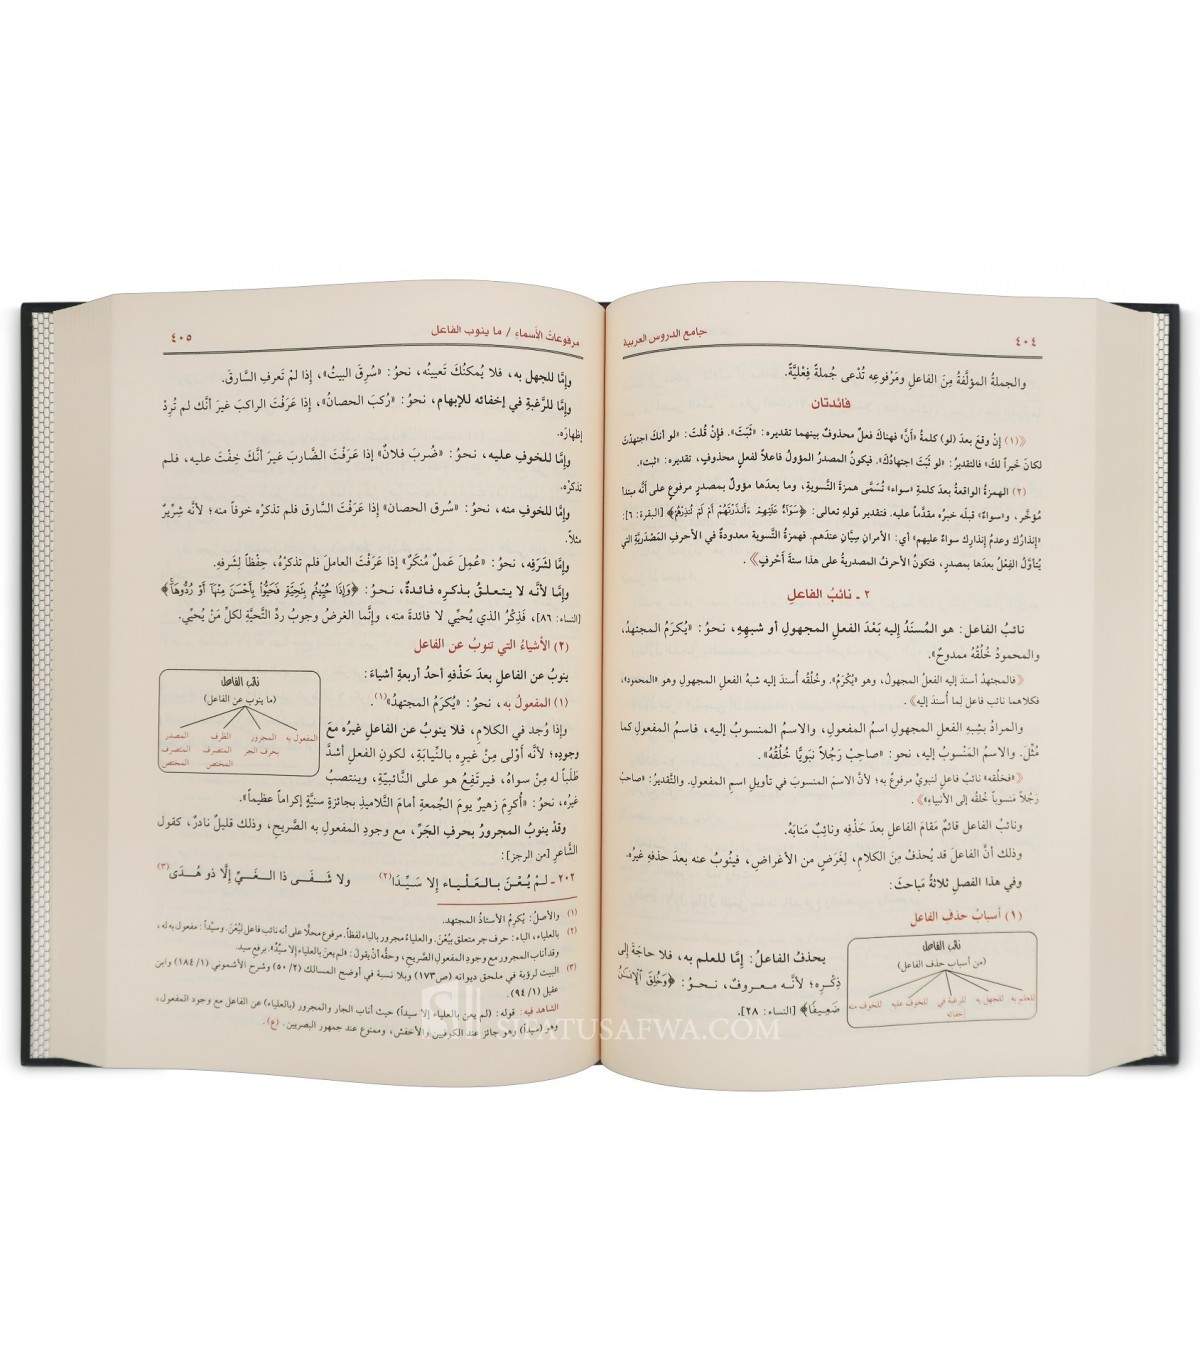 ٤٠٤
جامع الدروس العربية
والجملةُ المؤلَّفةُ مِنَ الفاعلِ ومَرْفوعِه تُدْعى جُملةً فِعْليَّةً.
فائدتان
(١) إنْ وقعَ بعدَ (لو) كلمةُ «أنَّ» فهناكَ فعلٌ محذوفٌ بينهما تقديره: «ثَبَتَ». فإنْ قُلتَ: «لو أنكَ اجتهدْتَ
لكانَ خَيراً لكَ» فالتقديرُ: «لو ثَبَتَ اجتهادُكَ». فيكونُ المصدرُ المؤولُ فاعلاً لفعلٍ محذوفٍ، تقديره: «ثبت».
(٢) الهمزةُ الواقعةُ بعدَ كلمةِ «سواء» تُسَمَّى همزةَ التَّسويةِ، وما بعدَها مؤولٌ بمصدرٍ مرفوعٍ على أنَّه مبتدا
مُؤخَّر، و«سواءٌ» قبلَه خبرُه مقدَّماً عليه. فتقدير قولهِ تعالى: ﴿سَوَآءٌ عَلَيْهِمْ ءَأَنذَرْتَهُمْ أَمْ لَمْ تُنذِرْهُمْ﴾ [البقرة: ٦]:
«إنذارُكَ وعدمُ إنذارِك سواءٌ عليهم» أي: الأمرانِ سِيَّانِ عندَهم. فهمزةُ التَّسوية معدودةٌ في الأحرفِ المَصْدَريَّةِ التي
يُتأوَّلُ الفِعْلُ بعدَها بمصدرٍ، فتكونُ الأحرفُ المصدريةُ على هذا ستةَ أحْرفٍ.
٢ ـ نائبُ الفاعلِ
نائبُ الفاعل: هو المُسنَدُ إليه بَعْدَ الفعلِ المجهولِ أو شبههِ، نحوُ: «يُكرَمُ المجتهدُ،
والمحمودُ خُلُقُهُ ممدوحٌ».
«فالمجتهدُ أسندَ إليه الفعلُ المجهولُ، وهو «يُكْرَمُ». وخُلُقُه أُسندَ إليه شبهُ الفعلِ المجهولِ وهو «المحمود»،
فكلاهما نائب فاعل لِما أُسندَ إليه» .
والمرادُ بشِبهِ الفعلِ المجهولِ اسمُ المفعولِ، والاسمُ المنسوبُ إليه، فاسمُ المفعولِ كما
مُثِّلَ. والاسمُ المَنْسوبُ إليه، نحو: «صاحِبْ رَجُلاً نبَويًّا خُلُقُهُ».
««فخُلُقه» نائبُ فاعلٍ لنبويٍّ مرفوعٌ به؛ لأنَّ الاسمَ المنسوبَ في تأويلِ اسمِ المفعولِ. والتَّقديرُ: «صاحبْ
رَجُلاً مَنسوباً خُلقُه إلى الأنبياءِ» .
ونائبُ الفاعل قائمٌ مَقامَ الفاعلِ بعدَ حَذْفِه ونائبٌ مَنابَهُ.
وذلك أنَّ الفاعلَ قد يُحذفُ مِنَ الكلامِ، لِغَرَضٍ من الأغراضِ، فينُوبُ عنه بعدَ حذفهِ غيرُه.
وفي هذا الفصلِ ثلاثةُ مَباحثَ:
(١) أسبابُ حذفِ الفاعل
نائب الفاعل
(من أسباب حذف الفاعل)
للعلم به للجهل به للرغبة في للخوف عليه للخوف منه
إخفائه
يحذفُ الفاعلُ: إمَّا للعلم به، فلا حاجَةَ إلى
ذِكْرِه؛ لأنَّه معروفٌ، نحوُ: ﴿وَخُلِقَ ٱلْإِنسَٰنُ
ضَعِيفًا﴾ [النساء: ٢٨].
مرفوعات الأسماء / ما ينوب الفاعل
٤٠٥
وإمَّا للجهل به، فلا يُمكنُكَ تَعيينُه، نحوُ: «سُرِقَ البيتُ»، إذا لمْ تَعرفِ السَّارقَ.
وإمَّا للرَّغبةِ في إخفائه للإبهام، نحوُ: «رُكِبَ الحصانُ»، إذا عَرَفْتَ الراكبَ غيرَ أنَّك لم تُرِدْ
إظهارَه.
وإمَّا للخوفِ عليه، نحوُ: «ضُربَ فلانٌ» إذا عَرَفتَ الضَّاربَ غيرَ أنَّكَ خِفْتَ عليه، فلم
تذكرْه.
وإمَّا للخوفِ منه، نحوُ: «سُرق الحصان» إذا عَرَفْتَ السَّارقَ فلم تذكرْه خوفاً منه؛ لأنَّه شِرِّيرٌ
مثلاً.
وإمَّا لشَرَفِه، نحوُ: «عُمِلَ عَملٌ مُنكَرٌ» إذا عَرَفْتَ العاملَ فلم تذكرْهُ، حِفْظاً لِشَرفهِ.
وإمَّا لأنَّه لا يتعلقُ بذكرِه فائدةٌ، نحوُ: ﴿وَإِذَا حُيِّيتُم بِتَحِيَّةٍ فَحَيُّوا۟ بِأَحْسَنَ مِنْهَآ أَوْ رُدُّوهَآ﴾
[النساء: ٨٦]، فَذِكْرُ الذي يُحيِّي لا فائدةَ منه، وإنَّما الغرضُ وجوبُ ردِّ التَّحيَّةِ لكلِّ مَنْ يُحيِّي.
(٢) الأشياءُ التي تنوبُ عن الفاعل
ينوبُ عن الفاعلِ بعدَ حَذْفهِ أحدُ أربعةِ أشياءَ:
(١) المفعولُ به، نحوُ: «يُكرَمُ المجتهدُ»(١).
نائب الفاعل
(ما ينوب عن الفاعل)
المفعول به المجرور الظرف المصدر
بحرف الجر المتصرف المتصرف
المختص المختص
وإذا وُجد في الكلامِ، فلا ينوبُ عن الفاعلِ غيرُه معَ
وجودِه؛ لأنَّه أوْلى مِنْ غيرِه بالنِّيابَةِ، لكونِ الفعلِ أشدَّ
طَلَباً له مِنْ سواهُ، فيرتَفِعُ هو على النَّائبيَّةِ، وينتصبُ
غيرُه، نحوُ: «أُكرِمَ زهيرٌ يومَ الجُمعةِ أمامَ التَّلاميذِ بجائزةٍ سنيَّةٍ إكراماً عظيماً».
وقدْ ينوبُ المجرورُ بحرفِ الجَرِّ، مع وجودِ المفعولِ به الصَّريحِ، وذلك قليلٌ نادرٌ، كقول
الشَّاعرِ [من الرجز]:
٢٠٢ ـ لَمْ يُعْنَ بِالعَلْيَاءِ إلا سَيِّدَا(٢) ولا شَفَى ذا الغَيِّ إلَّا ذو هُدَى(٣)
(١) والأصلُ: يُكرِمُ الأستاذُ المجتهد.
(٢) بالعلياء، الباء: حرف جر متعلق بيُعْنَ. والعلياءُ مجرور بالباء لفظاً. مرفوع محلًّا على أنه نائب فاعل ليُعْنَ. وسيِّداً: مفعول به له،
وقد أناب المجرور مع وجودِ المفعول الصَّريح، وحقُّه أنْ يقولَ: «لم يعنَ بالعلياءِ إلا سيِّدٌ». برفعِ سيد.
(٣) البيت لرؤبة في ملحق ديوانه (ص١٧٣) وبلا نسبة في أوضح المسالك (٢/ ٥٠) وشرح الأشموني (١/ ١٨٤) وابن
عقيل (١/ ٩٤).
الشاهد فيه: قوله: (لم يعنَ بالعلياءِ إلا سيداً) حيث أناب الجار والمجرور (بالعلياء) عن الفاعل مع وجود المفعول،
وهو (سيداً) وهو جائز عند الكوفيين والأخفش، وممنوع عند جمهور البصريين. (ع).
SIFATUSAFWA.COM